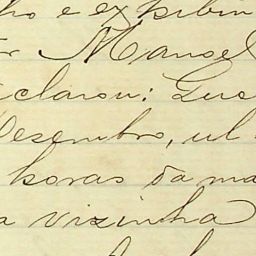 e exhibin
Manoel
clarou: Que
Dezembro, ul
horas da ma
a vizinha